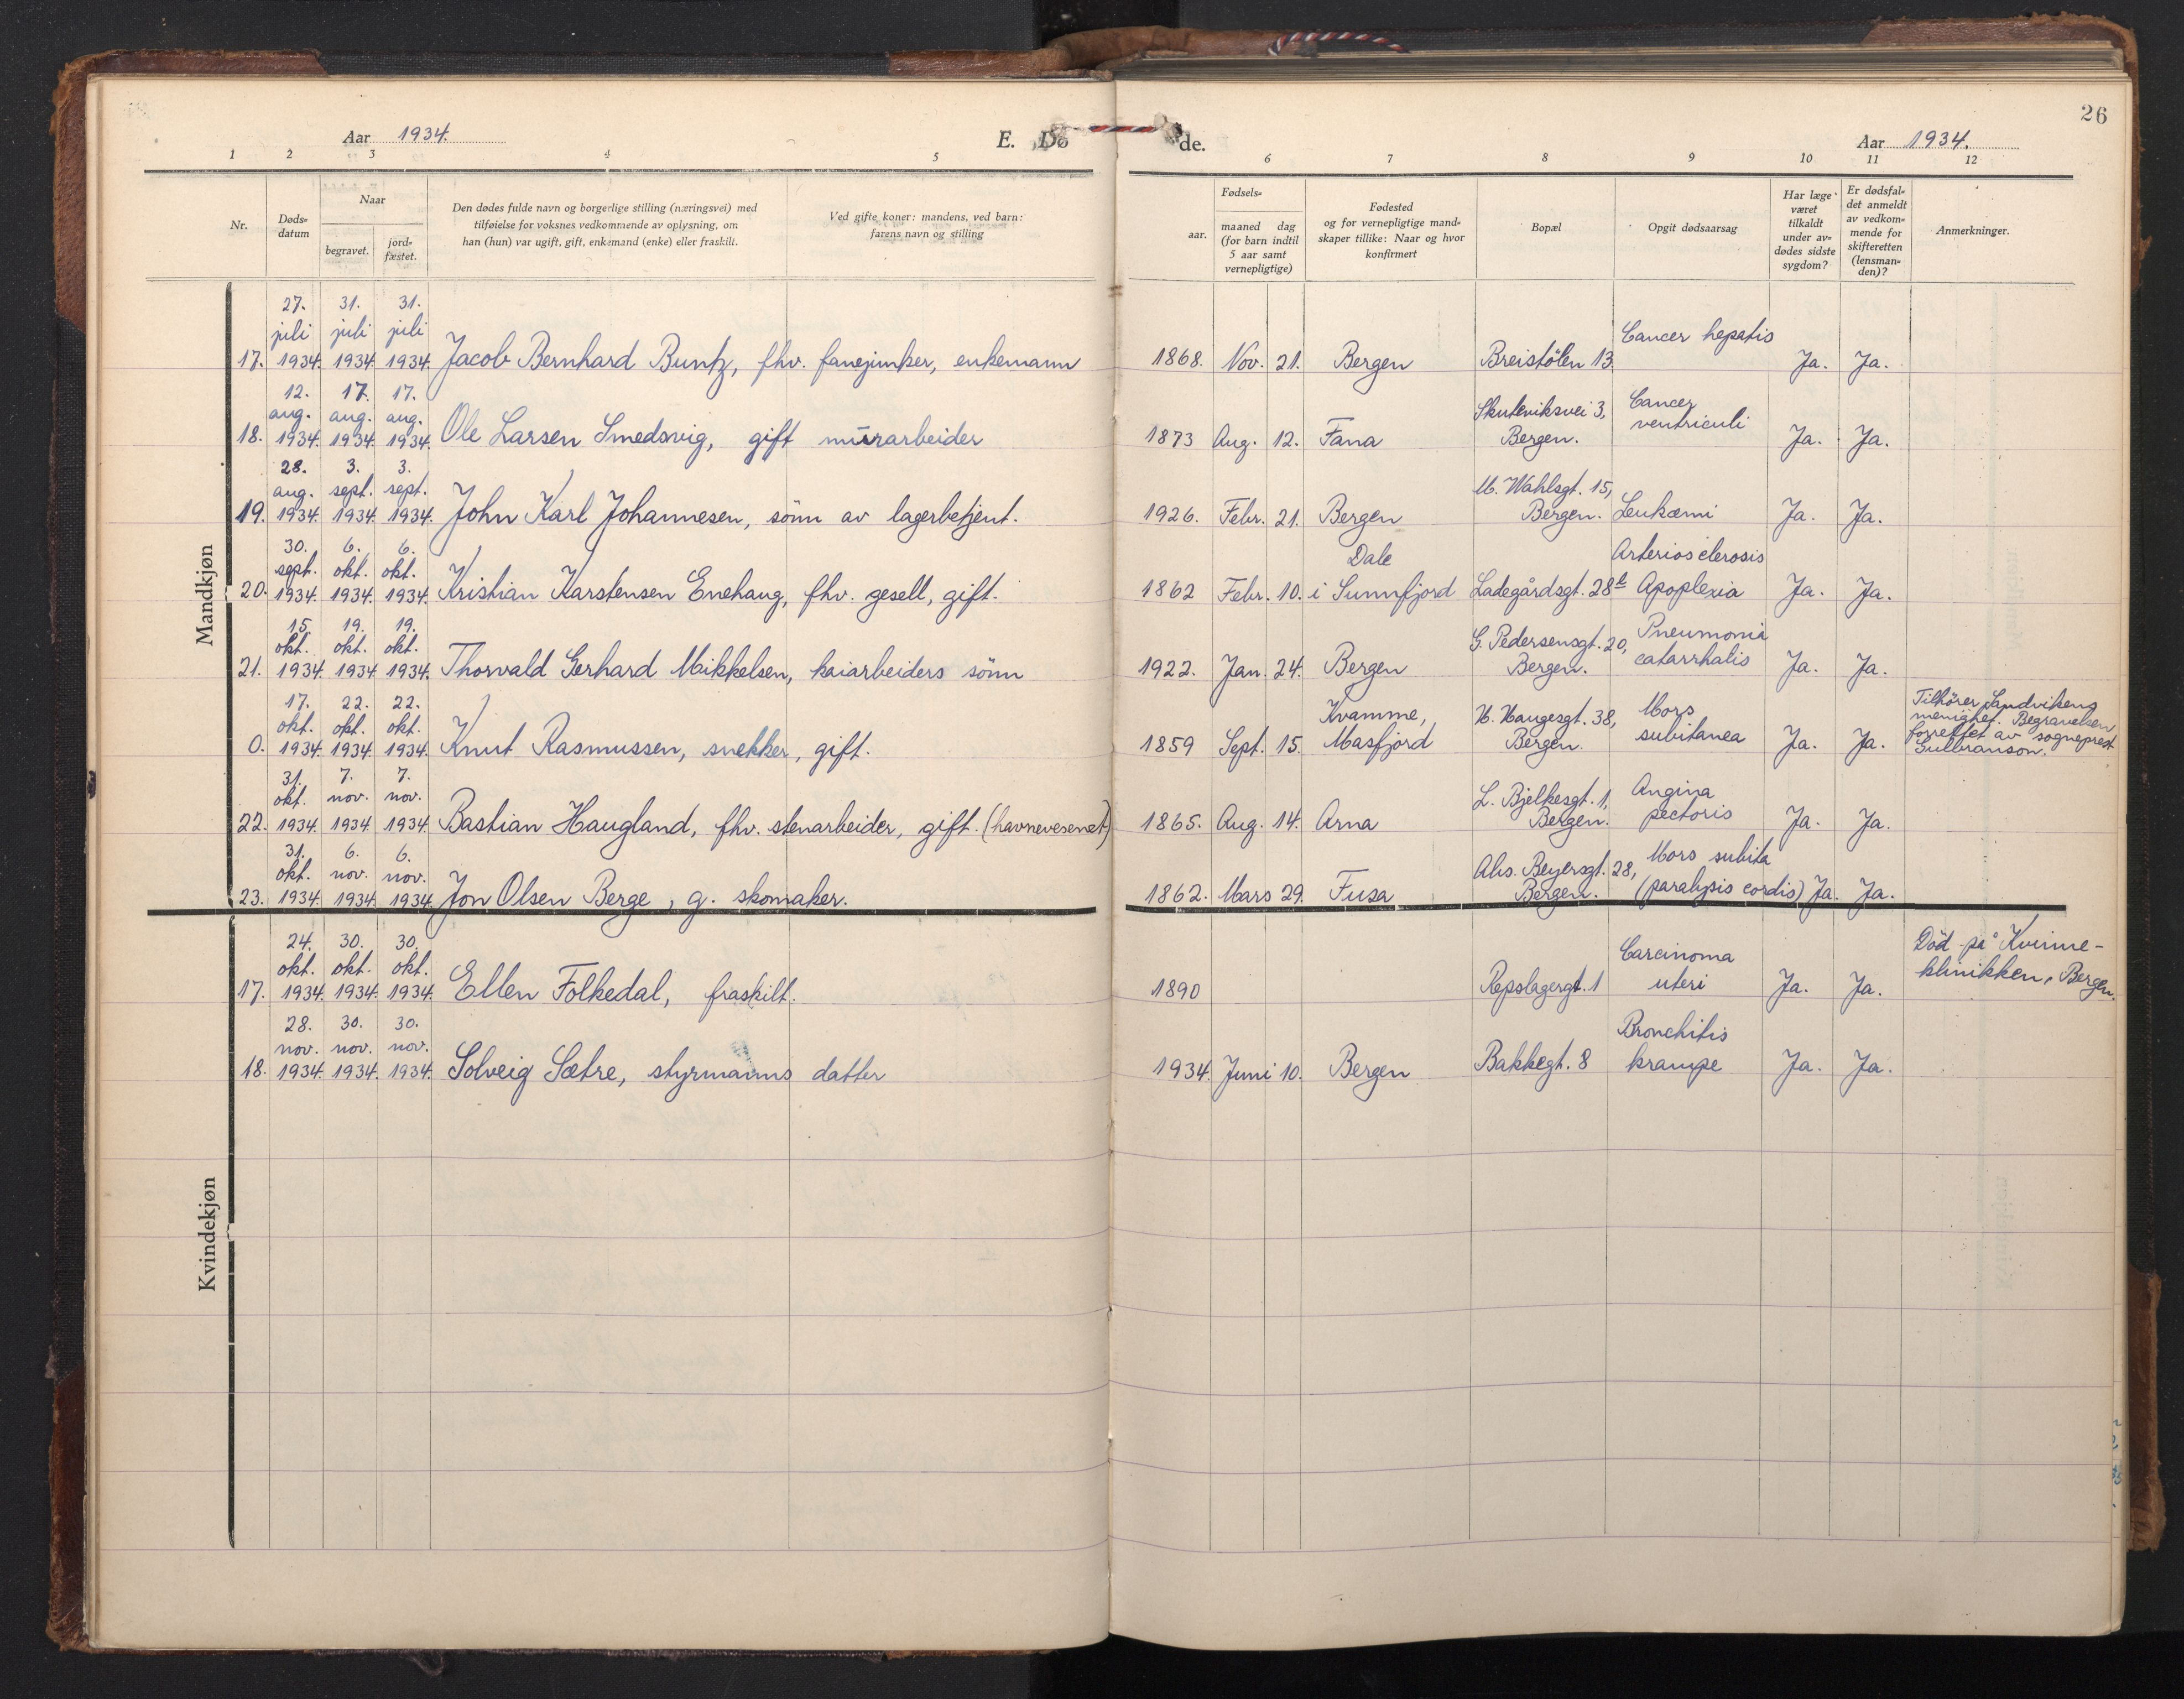 26
Aar 1934.
E. Dø
de.
Aar 1934.
1 2 3 4 5
6 7 8 9 10 11 12
Nr.
Døds-
datum
Naar
begravet.
jord-
fæstet.
Den dødes fulde navn og borgerlige stilling (næringsvei) med
tilføielse for voksnes vedkommende av oplysning, om
han (hun) var ugift, gift, enkemand (enke) eller fraskilt.
Ved gifte koner: mandens, ved barn:
farens navn og stilling
Fødsels-
aar.
maaned dag
(for barn indtil
5 aar samt
vernepligtige)
Fødested
og for vernepligtige mand-
skaper tillike: Naar og hvor
konfirmert
Bopæl
Opgit dødsaarsag
Har læge
været
tilkaldt
under av-
dødes sidste
sygdom?
Er dødsfal-
det anmeldt
av vedkom-
mende for
skifteretten
(lensman-
den)?
Anmerkninger.
Mandkjøn
27. 31. 31.
juli juli juli
Cancer hepatis
17. 1934. 1934. 1934. Jacob Bernhard Buntz, fhv. fanejunker, enkemann 1868. Nov. 21. Bergen Breistølen 13. Ja. Ja.
12. 17. 17.
aug. aug. aug. Skuteviksvei 3, Cancer
ventriculi
18. 1934. 1934. 1934. Ole Larsen Smedsvig, gift murarbeider 1873 Aug. 12. Fana Bergen. Ja. Ja.
28. 3. 3.
aug. sept. sept. M. Wahlsgt. 15,
19. 1934. 1934. 1934. John Karl Johannesen, sönn av lagerbetjent. 1926. Febr. 21. Bergen Bergen. Leukæmi Ja. Ja.
30. 6. 6. Dale Arteriosclerosis
sept. okt. okt.
20. 1934. 1934. 1934. Kristian Karstensen Enehaug, fhv. gesell, gift. 1862 Febr. 10. i Sunnfjord Ladegårdsgt. 28b Apoplexia Ja. Ja.
15. 19. 19.
okt. okt. okt. G. Pedersensgt. 20, Pneumonia
21. 1934. 1934. 1934. Thorvald Gerhard Mikkelsen, kaiarbeiders sönn 1922. Jan. 24. Bergen Bergen. catarrhalis Ja. Ja.
17. 22. 22.
okt. okt. okt. Kvamme, H. Haugesgt. 38, Mors
0. 1934. 1934. 1934. Knut Rasmussen, snekker, gift. 1859 Sept. 15. Masfjord Bergen. subitanea Ja. Ja.
Tilhörer Sandvikens
menighet. Begravelsen
forrettet av sogneprest
Gulbranson.
31. 7. 7.
okt. nov. nov. L. Bjelkesgt. 1, Angina
22. 1934. 1934 1934. Bastian Haugland, fhv. stenarbeider, gift. (havnevesenet) 1865. Aug. 14. Arna Bergen. pectoris Ja. Ja.
31. 6. 6.
okt. nov. nov. Abs. Beyersgt. 28, Mors subita
23. 1934. 1934. 1934. Jon Olsen Berge, g. skomaker. 1862. Mars 29. Fusa Bergen. (paralysis cordis) Ja. Ja.
Kvindekjøn
24. 30. 30.
okt. okt. okt. Carcinoma
17. 1934. 1934. 1934. Ellen Folkedal, fraskilt. 1890 Repslagergt. 1 uteri Ja. Ja.
Död på Kvinne-
klinikken, Bergen.
28. 30. 30.
nov. nov. nov. Bronchitis
18. 1934. 1934. 1934. Solveig Sætre, styrmanns datter 1934. Juni 10. Bergen Bakkegt. 8 krampe Ja. Ja.